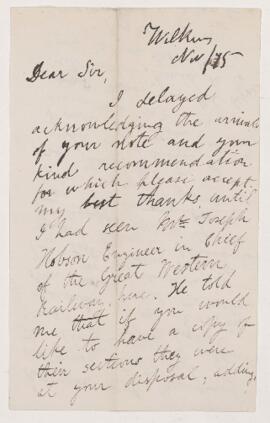 Nov/75
Dear Sir,
I delayed
acknowledging the arrival
of your note and your
kind recommendation
for which please accept
my best thanks, until
I had seen Mr. Joseph
Hobson Engineer in Chief
of the Great Western
Railway here. He told
me that if you would
like to have a copy of
their sections they were
at your disposal, adding